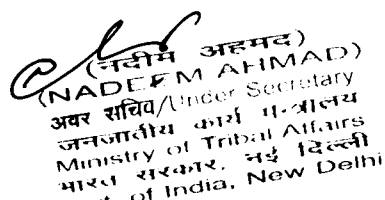 (नदीम अहमद)
(NADEEM AHMAD)
अवर सचिव/Under Secretary
जनजातीय कार्य मन्त्रालय
Ministry of Tribal Affairs
भारत सरकार, नई दिल्ली
of India, New Delhi